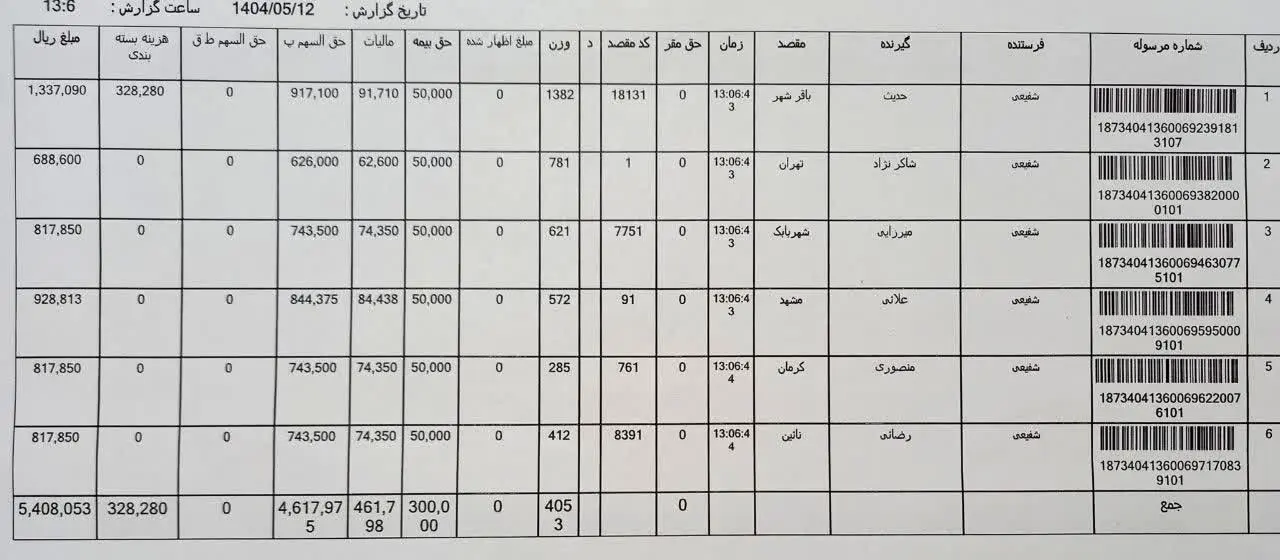 تاریخ گزارش : 1404/05/12 ساعت گزارش : 13:6
ردیف شماره مرسوله فرستنده گیرنده مقصد زمان حق مقر کد مقصد د وزن مبلغ اظهار شده حق بیمه مالیات حق السهم پ حق السهم ط ق هزینه بسته بندی مبلغ ریال
1 187340413600692391813107 شفیعی حدیث باقر شهر 13:06:43 0 18131 1382 0 50,000 91,710 917,100 0 328,280 1,337,090
2 187340413600693820000101 شفیعی شاکر نژاد تهران 13:06:43 0 1 781 0 50,000 62,600 626,000 0 0 688,600
3 187340413600694630775101 شفیعی میرزایی شهربابک 13:06:43 0 7751 621 0 50,000 74,350 743,500 0 0 817,850
4 187340413600695950009101 شفیعی علائی مشهد 13:06:43 0 91 572 0 50,000 84,438 844,375 0 0 928,813
5 187340413600696220076101 شفیعی منصوری کرمان 13:06:44 0 761 285 0 50,000 74,350 743,500 0 0 817,850
6 187340413600697170839101 شفیعی رضائی نائین 13:06:44 0 8391 412 0 50,000 74,350 743,500 0 0 817,850
جمع 0 4053 0 300,000 461,798 4,617,975 0 328,280 5,408,053